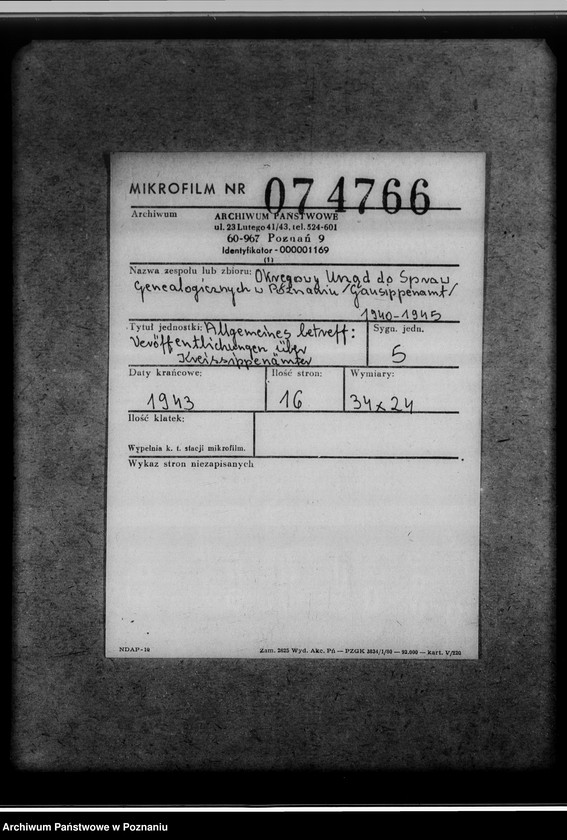 MIKROFILM NR 074766
Archiwum
ARCHIWUM PAŃSTWOWE
ul. 23 Lutego 41/43, tel. 524-601
60-967 Poznań 9
Identyfikator - 000001169
(1)
Nazwa zespołu lub zbioru: Okręgowy Urząd do Spraw
Genealogicznych w Poznaniu /Gausippenamt/
1940-1945
Tytuł jednostki: Allgemeines betreff:
Veröffentlichungen über
Kreissippenämter
Sygn. jedn.
5
Daty krańcowe:
1943
Ilość stron:
16
Wymiary:
34x24
Ilość klatek:
Wypełnia k. t. stacji mikrofilm.
Wykaz stron niezapisanych
NDAP-10
Zam. 2625 Wyd. Akc. Pń — PZGK 2634/1/80 — 93.000 — Kart. V/220
Archiwum Państwowe w Poznaniu